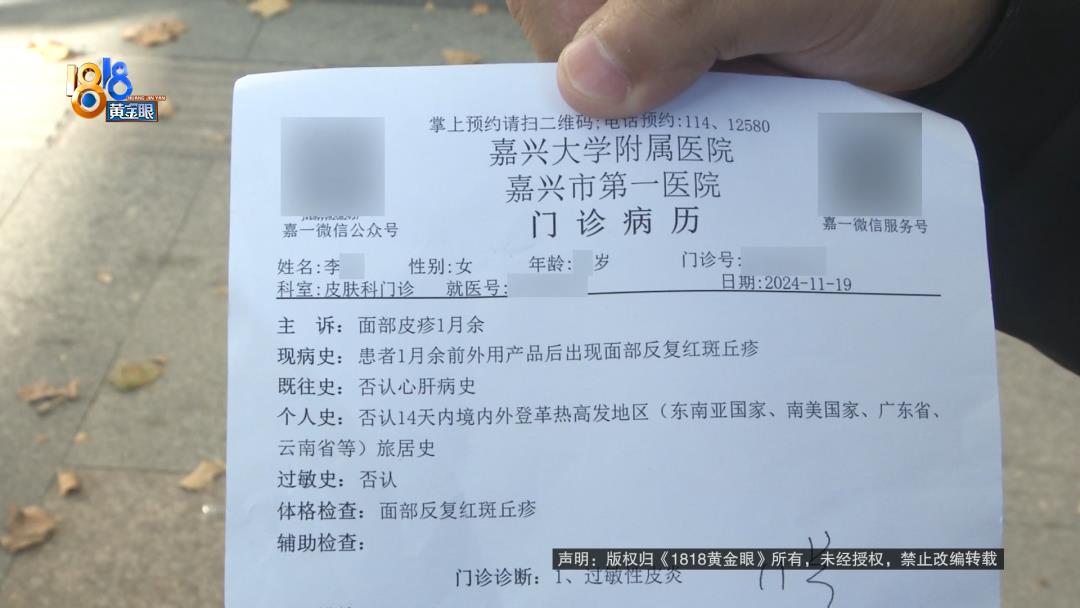 1818
HUANG JIN YAN
黄金眼
掌上预约请扫二维码;电话预约:114、12580
嘉兴大学附属医院
嘉兴市第一医院
门诊病历
嘉一微信公众号
嘉一微信服务号
姓名:李 性别:女 年龄: 岁 门诊号:
科室:皮肤科门诊 就医号: 日期:2024-11-19
主 诉：面部皮疹1月余
现病史：患者1月余前外用产品后出现面部反复红斑丘疹
既往史：否认心肝病史
个人史：否认14天内境内外登革热高发地区（东南亚国家、南美国家、广东省、
云南省等）旅居史
过敏史：否认
体格检查：面部反复红斑丘疹
辅助检查：
门诊诊断：1、过敏性皮炎
声明：版权归《1818黄金眼》所有，未经授权，禁止改编转载